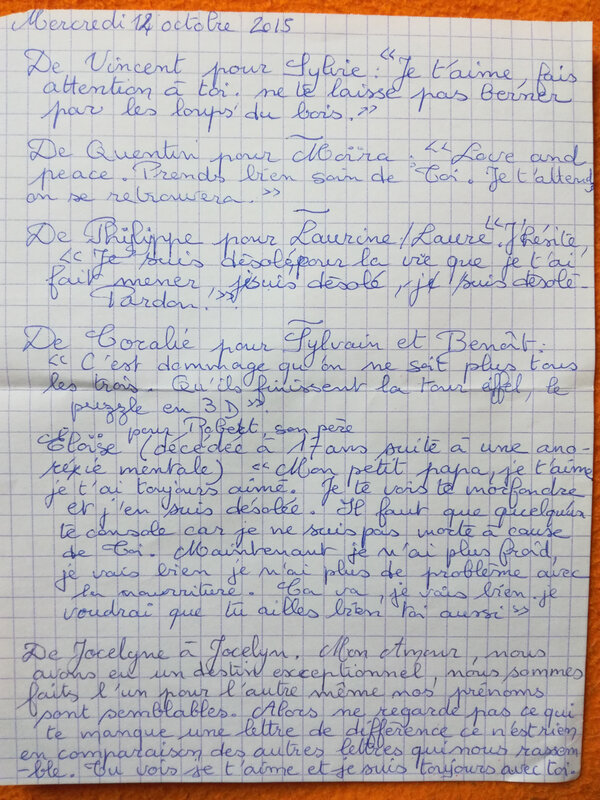 Mercredi 14 octobre 2015
De Vincent pour Sylvie : « Je t'aime, fais
attention à toi. ne te laisse pas berner
par les loups du bois. »
De Quentin pour Moïra : « Love and
peace. Prends bien soin de Toi. Je t'attends
on se retrouvera. »
De Philippe pour Laurine / Laure. « J'hésite,
« Je suis désolé pour la vie que je t'ai
fait mener, je suis désolé, je suis désolé-
Pardon. »
De Coralie pour Sylvain et Benoît :
« C'est dommage qu'on ne soit plus tous
les trois. Qu'ils finissent la tour eiffel, le
puzzle en 3D ».
pour Robert, son père
Eloïse (décédée à 17 ans suite à une ano-
rexie mentale) « Mon petit papa, je t'aime
je t'ai toujours aimé. Je te vois te morfondre
et j'en suis desolée. Il faut que quelqu'un
te console car je ne suis pas morte à cause
de Toi. Maintenant je n'ai plus froid,
je vais bien je n'ai plus de problème avec
la nourriture. Ca va, je vais bien. je
voudrai que tu ailles bien toi aussi »
De Jocelyne à Jocelyn. Mon Amour, nous
avons eu un destin exceptionnel, nous sommes
faits l'un pour l'autre même nos prénoms
sont semblables. Alors ne regarde pas ce qui
te manque une lettre de différence ce n'est rien
en comparaison des autres lettres qui nous rassem-
-ble. Tu vois je t'aime et je suis toujours avec toi.